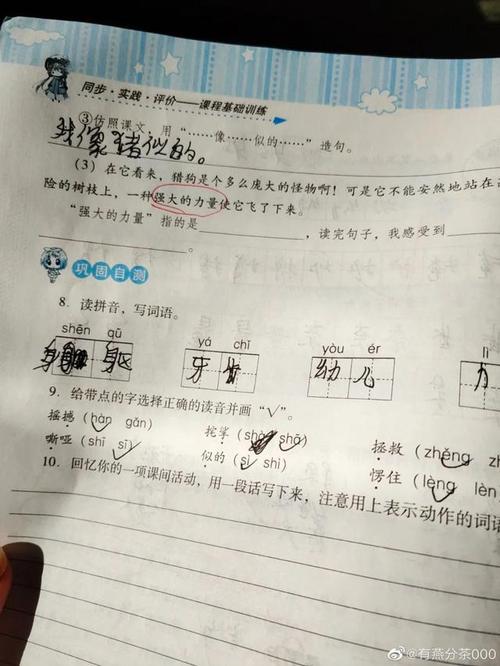 同步·实践·评价——课程基础训练
③仿照课文，用“……像……似的……”造句。
我像猪似的。
(3) 在它看来，猎狗是个多么庞大的怪物啊！可是它不能安然地站在
险的树枝上，一种强大的力量使它飞了下来。
“强大的力量”指的是____________，读完句子，我感受到______
巩固自测
8. 读拼音，写词语。
shēn qū yá chǐ yòu ér lì
身躯 牙齿 幼儿 力
9. 给带点的字选择正确的读音并画“√”。
摇撼 (hàn gǎn) 挓挲 (shà shā) 拯救 (zhěng
嘶哑 (shī sī) 似的 (sì shì) 愣住 (lèng lèn
10. 回忆你的一项课间活动，用一段话写下来，注意用上表示动作的词语
@有燕分茶000